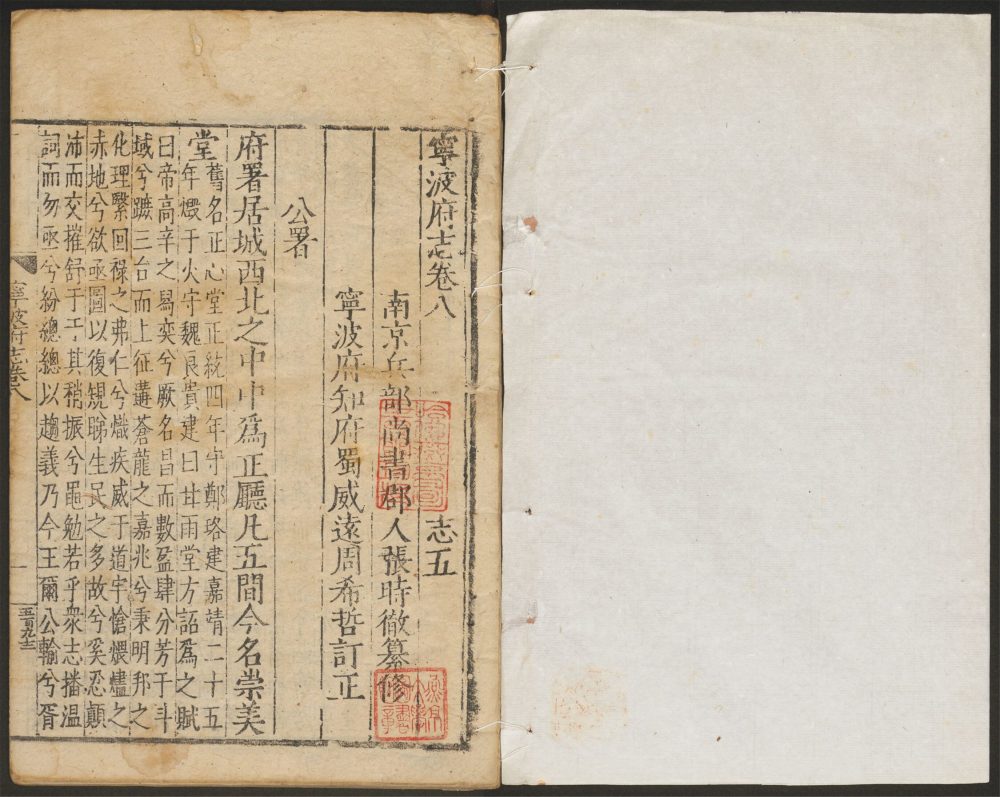 寧波府志卷八　志五
南京兵部尚書郡人張時徹纂修
寧波府知府蜀威遠周希哲訂正
公署
府署居城西北之中中爲正廳凡五間今名崇美
堂舊名正心堂正統四年守鄭珞建嘉靖二十五
年燬于火守魏良貴建曰甘雨堂方詔爲之賦
曰帝高辛之舄奕兮厥名昌而數盈肆分芳于斗
域兮躡三台而上征遘蒼龍之嘉兆兮秉明邦之
化理繄回祿之弗仁兮熾疾威于道宇愴煨燼之
赤地兮欲亟圖以復規睇生民之多故兮奚忍顛
沛而交摧舒于工其稍振兮黽勉若乎衆志播温
詞而勿亟兮紛總總以趨義乃今王爾公輸兮胥
寧波府志卷八